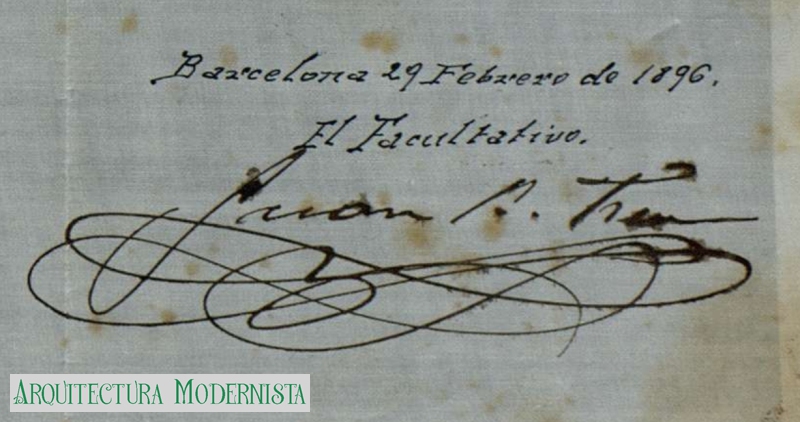 Barcelona 29 Febrero de 1896.
El Facultativo.
Juan B.
ARQUITECTURA MODERNISTA